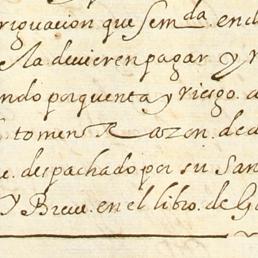 riguacion que se m.da en el
la devieren pagar y
ndo por quenta y riesgo
tomen Razon de
despachado por su San
Y Breve. en el libro. de